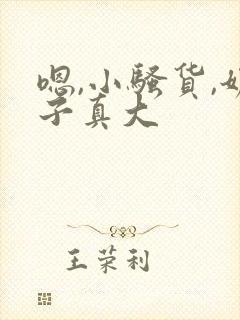 嗯,小骚货,奶
子真大
王荣利